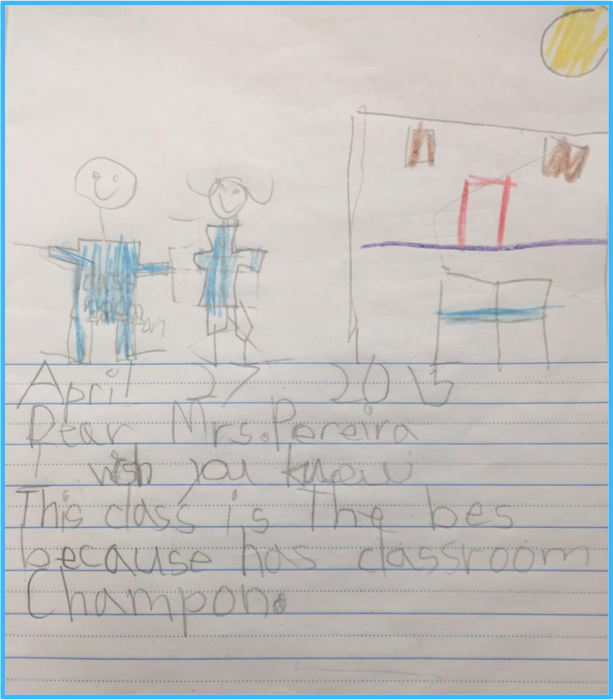 April 27 2015
Dear Mrs. Pereira
I wish you knew
This class is The bes
because has classroom
Champon.